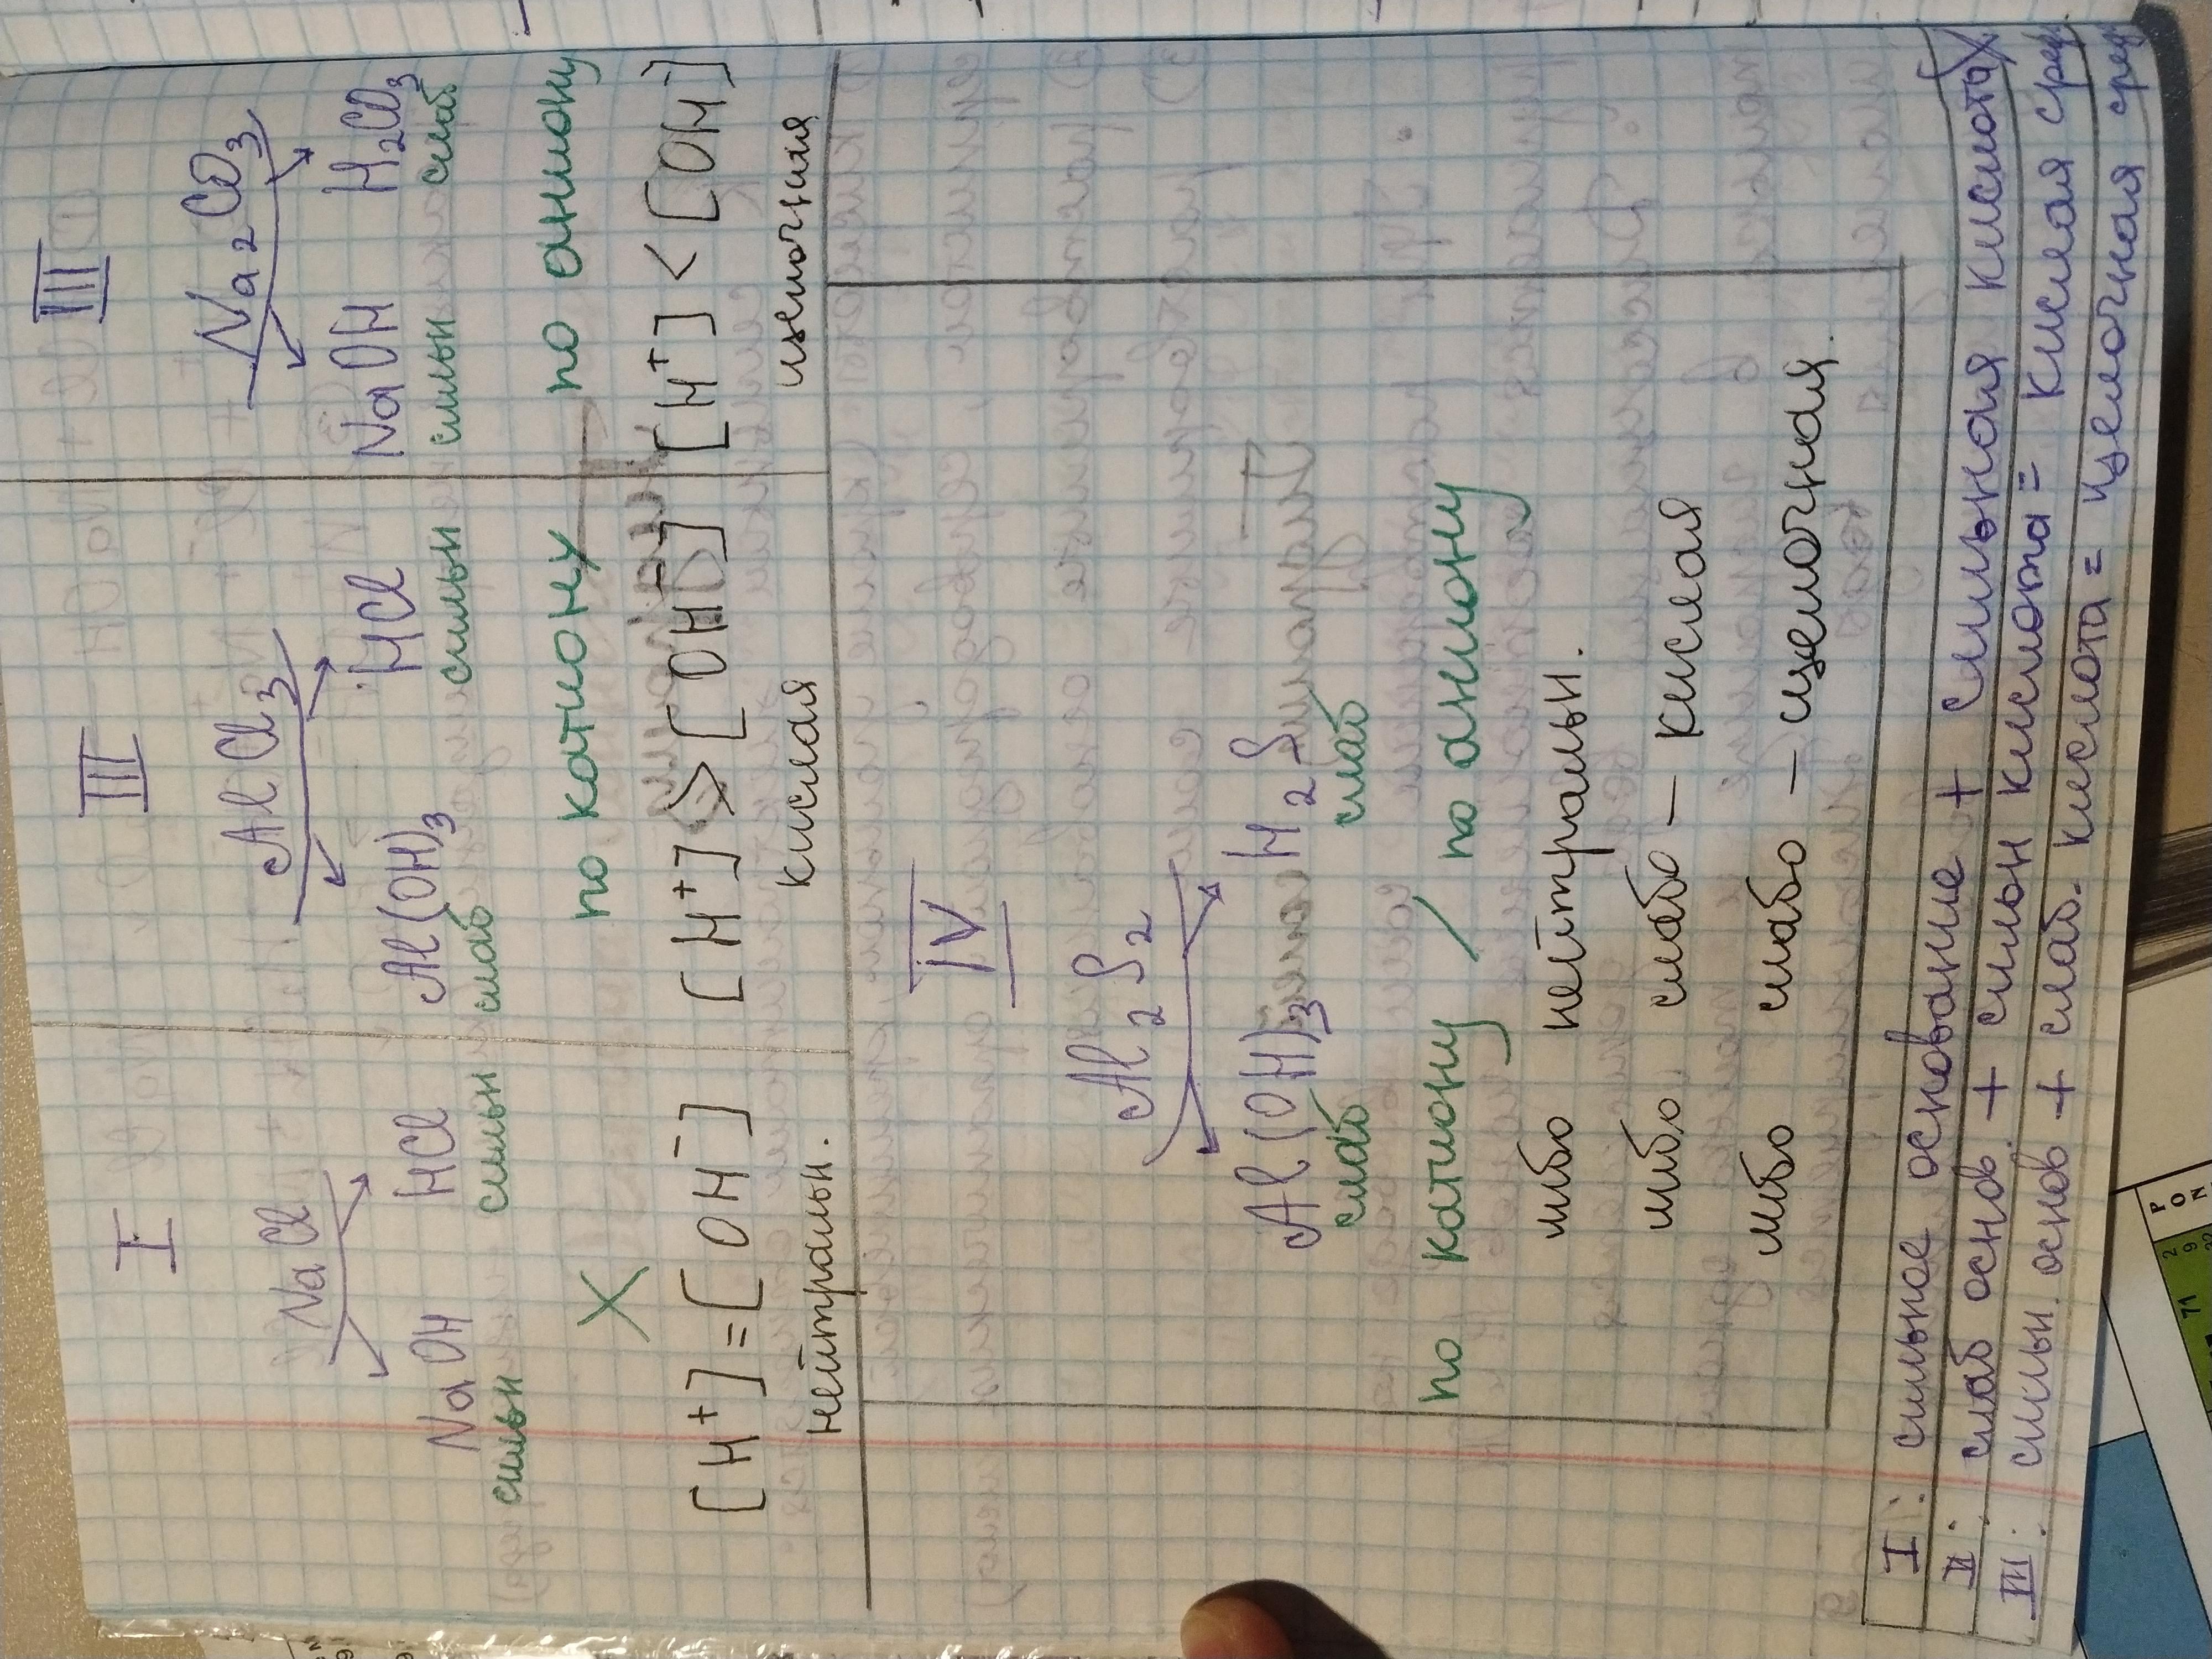 I
NaCl
NaOH HCl
сильн сильн
X
[H⁺]=[OH⁻]
нейтральн.
II
AlCl₃
Al(OH)₃ HCl
слаб сильн
по катиону
[H⁺]>[OH⁻]
кислая
III
Na₂CO₃
NaOH H₂CO₃
сильн слаб
по аниону
[H⁺]<[OH⁻]
щелочная
IV
Al₂S₂
Al(OH)₃ H₂S
слаб слаб
по катиону / по аниону
либо нейтральн.
либо слабо – кислая
либо слабо – щелочная.
I: сильное основание + сильная кислота X
II: слаб основ + сильн кислота = кислая сред
III: сильн. основ + слаб. кислота = щелочная сред